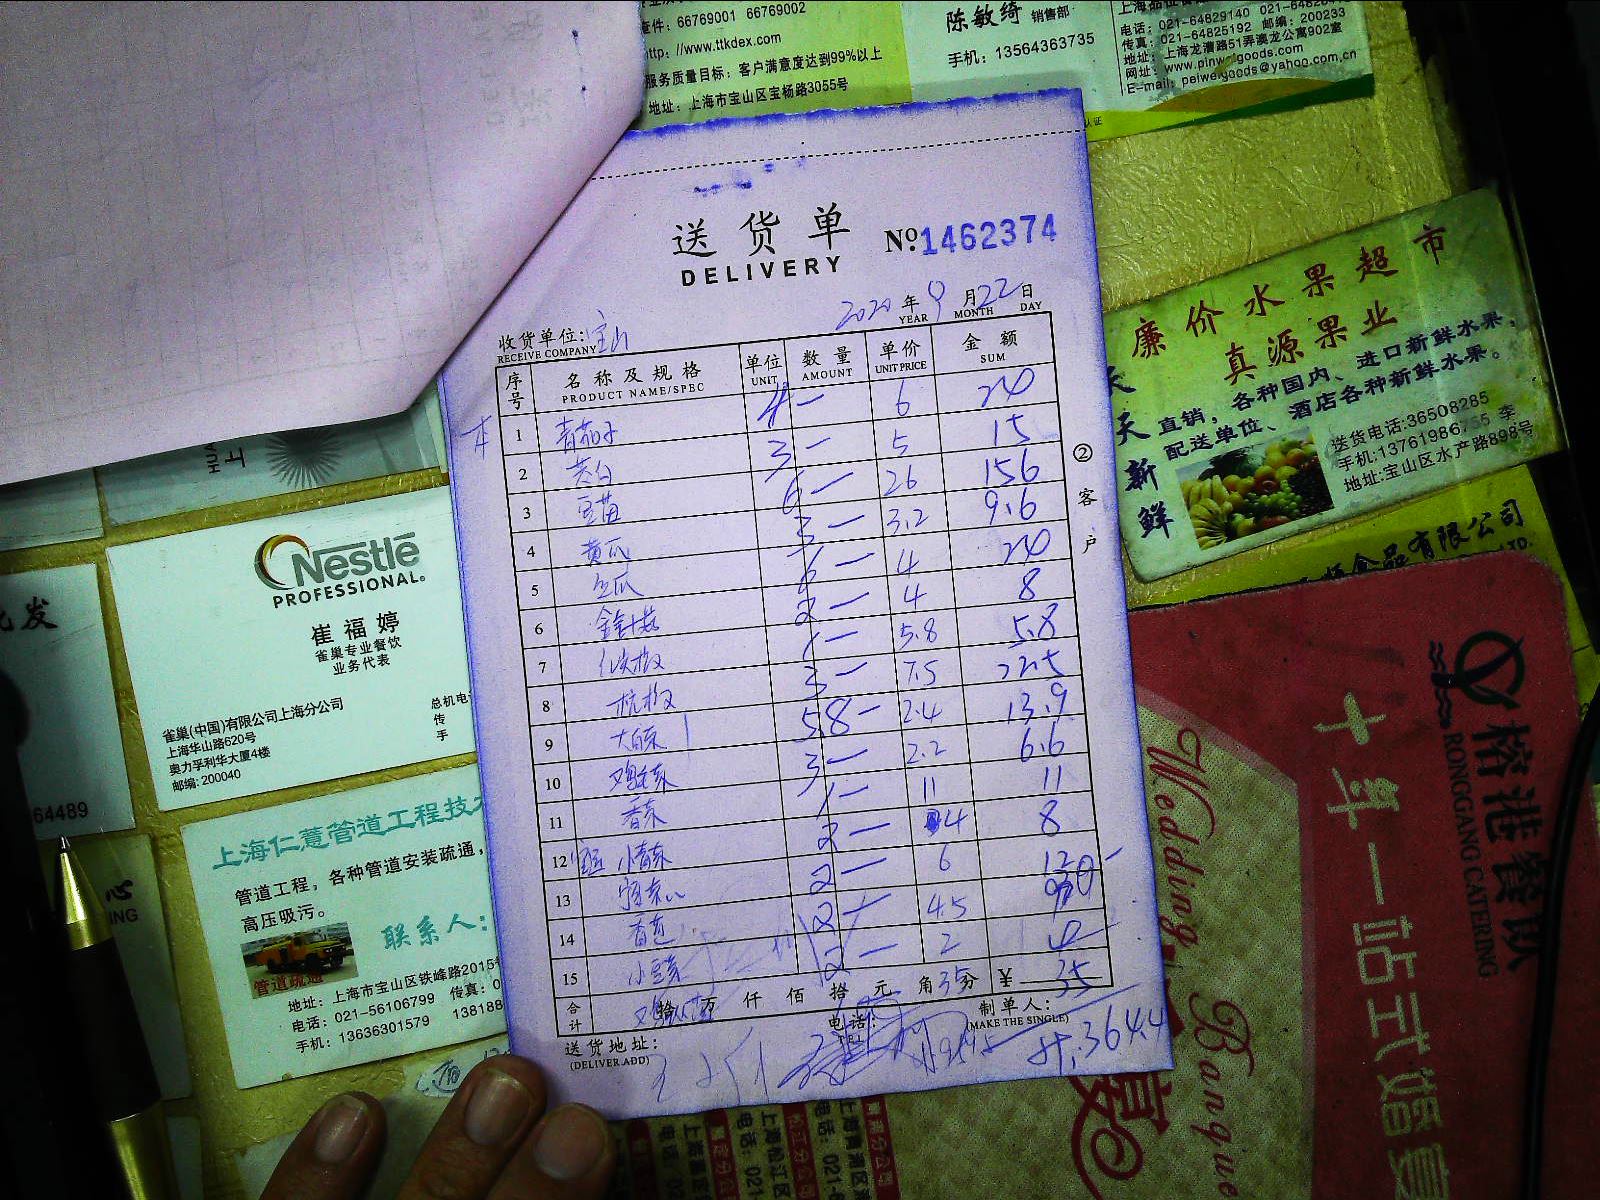 查件：66769001 66769002
http://www.ttkdex.com
服务质量目标：客户满意度达到99%以上
地址：上海市宝山区宝杨路3055号
陈敏绮 销售部
手机：13564363735
电话：021-64829140
传真：021-64825192 邮编：200233
地址：上海龙漕路51弄澳龙公寓902室
E-mail：peiweigoods@yahoo.com.cn
送货单 №1462374
DELIVERY
2020年9月22日
YEAR MONTH DAY
收货单位：宝山
RECEIVE COMPANY
序号 名称及规格 单位 数量 单价 金额
PRODUCT NAME/SPEC UNIT AMOUNT UNIT PRICE SUM
4 — 6 24
1 青茄子 3 — 5 15
2 茭白 6 — 26 156
3 豆苗 3 — 3.2 9.6
4 黄瓜 6 — 4 24
5 丝瓜 2 — 4 8
6 金针菇 1 — 5.8 5.8
7 3 — 7.5 22.5
8 杭椒 5.8 — 2.4 13.9
9 大白菜 3 — 2.2 6.6
10 鸡毛菜 1 — 11 11
11 香菜 2 — 4 8
12 小青菜 2 — 6 12
13 2 4.5
14 香葱 2 — 2 4
15 35 35
合计 拾 万 仟 佰 拾 元 角 分 ¥
送货地址：
(DELIVER ADD)
电话：
制单人：
(MAKE THE SINGLE)
364.4
②客户
Nestlé
PROFESSIONAL.
崔福婷
雀巢专业餐饮
业务代表
雀巢(中国)有限公司上海分公司
上海华山路620号
奥力孚利华大厦4楼
邮编：200040
总机电
传
手
批发
64489
上海仁薏管道工程技
管道工程，各种管道安装疏通，
高压吸污。
联系人：
管道疏通
地址：上海市宝山区铁峰路2015
电话：021-56106799 传真：0
手机：13636301579 138188
廉价水果超市
真源果业
天天新鲜
直销，各种国内、进口新鲜水果，
配送单位、酒店各种新鲜水果。
送货电话：36508285
手机：13761986755 李
地址：宝山区水产路898号
食品有限公司
榕港餐饮
RONGGANG CATERING
十年一站式婚宴
Wedding Banquet